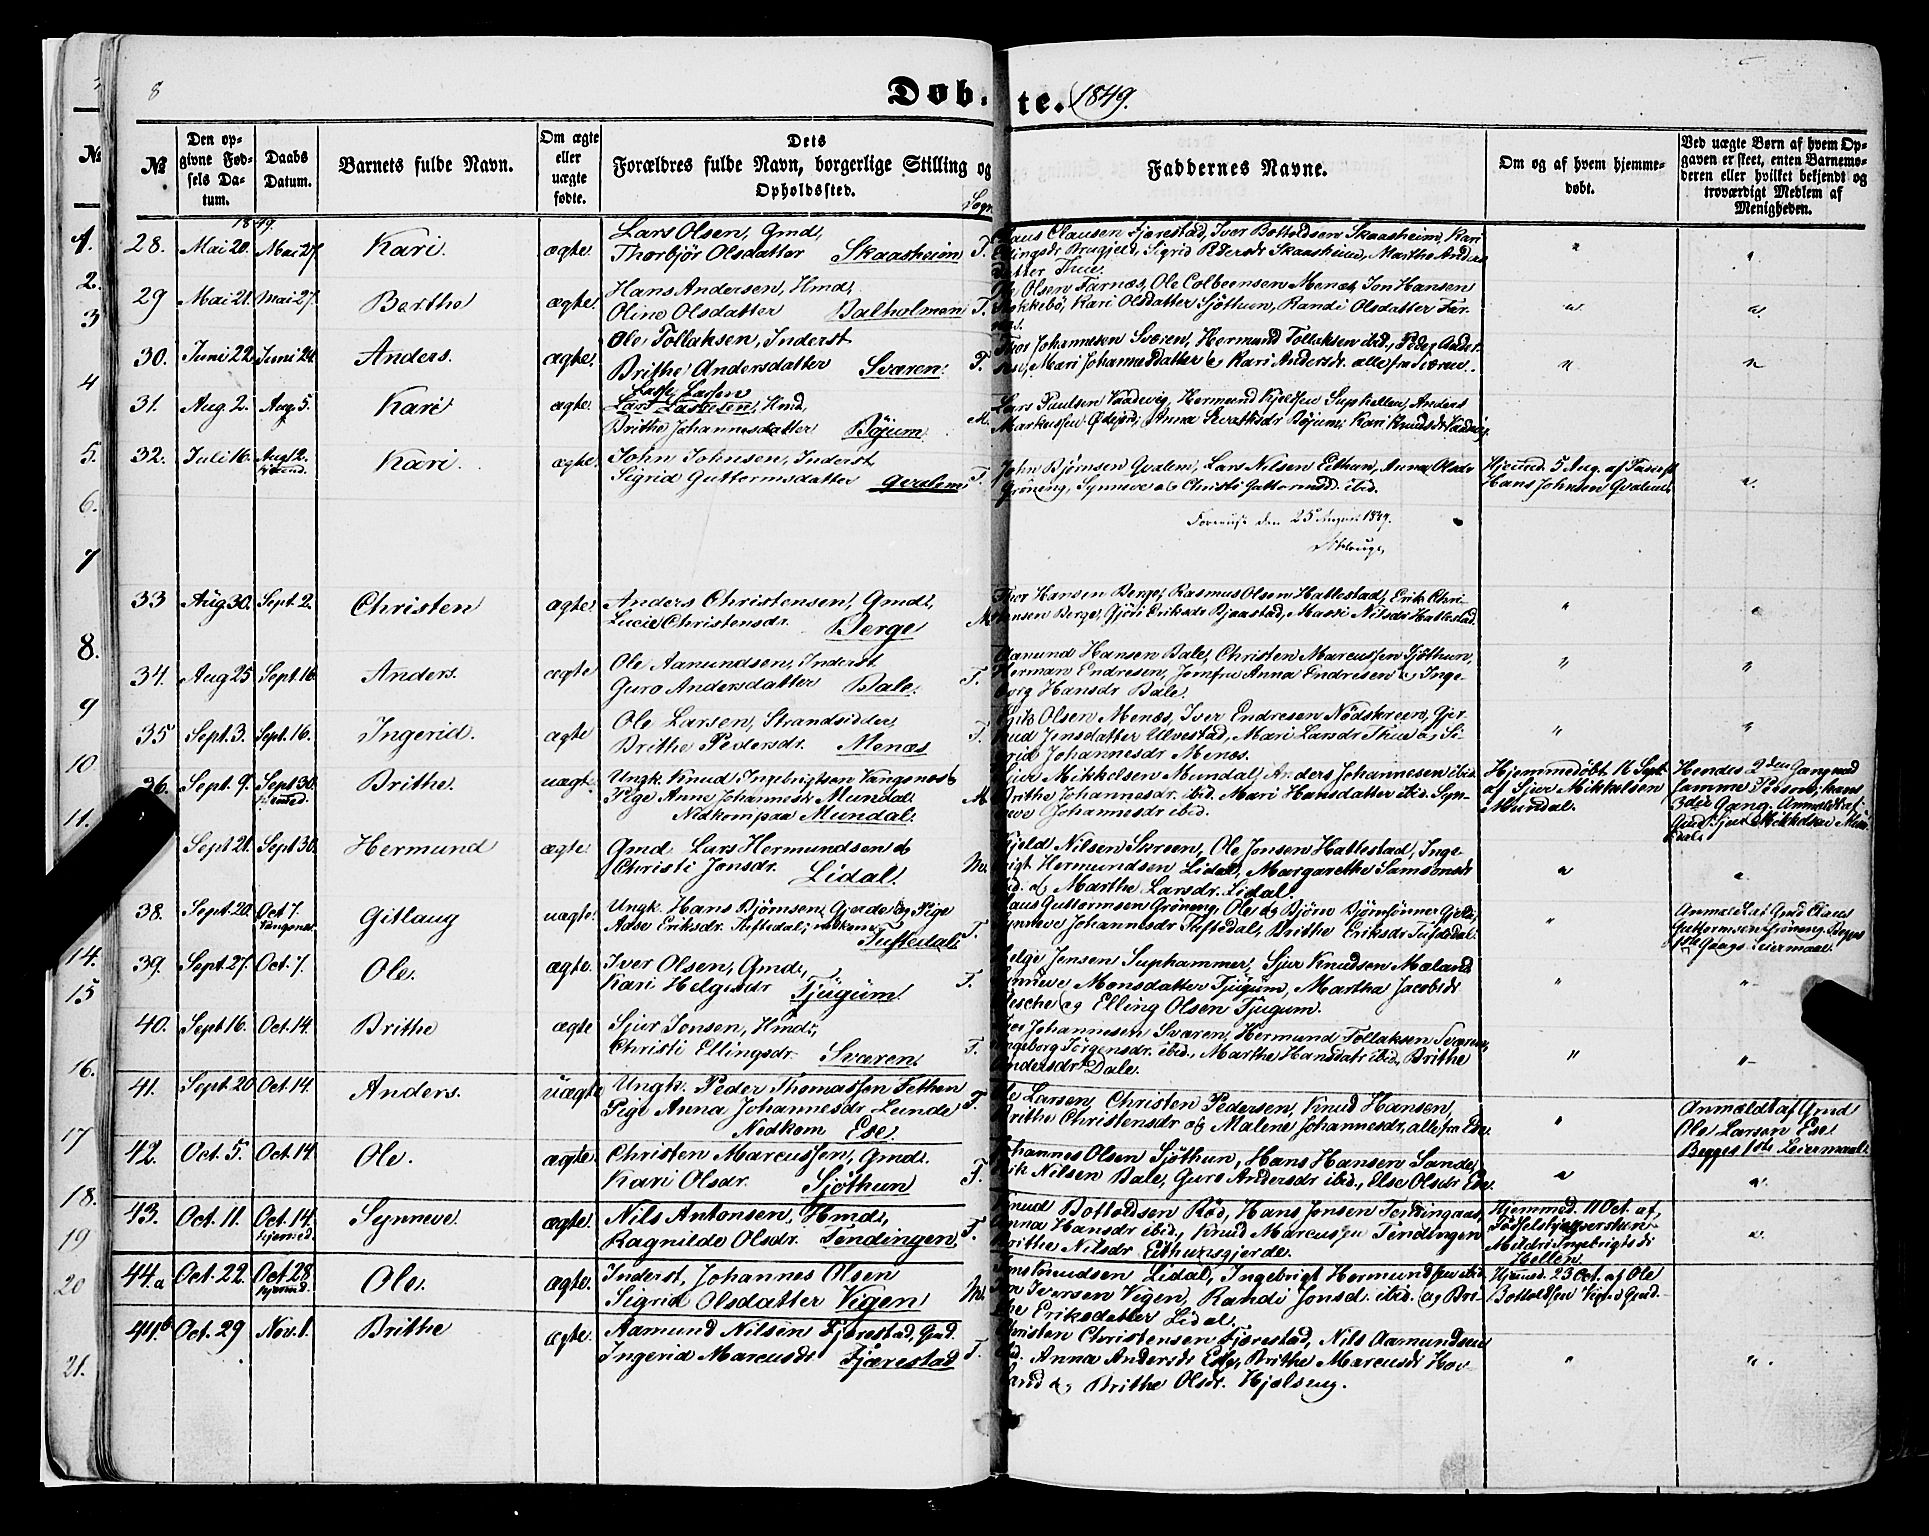 8
Døb-te. 1849.
№
Den opgivne Fødsels Datum.
Daabs Datum.
Barnets fulde Navn.
Om ægte eller uægte fødte.
Dets Forældres fulde Navn, borgerlige Stilling og Opholdssted.
Sogn
Faddernes Navne.
Om og af hvem hjemmedøbt.
Ved uægte Børn af hvem Opgaven er skeet, enten Barnemoderen eller hvilket bekjendt og troværdigt Medlem af Menigheden.
1849.
28. Mai 20. Mai 27. Kari. ægte.
Lars Olsen, Gmd,
Thorbjör Olsdatter Skaasheim F.
Claus Clausen Fjærestad, Iver Botoldsen Skaasheim, Kari
Ellingsdr Brugjeld, Sigrid Pedersdr Skaasheim, Marthe Anders
datter Thue.
29 Mai 21. Mai 27. Berthe ægte.
Hans Andersen, Hmd,
Oline Olsdatter Balholmen F.
Olsen Farnæs, Ole Colbeensen Menæs, Jon Hansen
Kari Olsdatter Sjøthun, Randi Olsdatter Far
næs.
30. Juni 22. Juni 24. Anders. ægte.
Ole Tollaksen, Inderst
Brithe Andersdatter Sværen. F.
Thor Johannesen Sværen, Hermund Tollaksen ibid., Peder Ander
sen, Mari Johannesdatter & Kari Andersdr. alle fra Sværen.
31. Aug 2. Aug 5. Kari ægte
Lasse Lassen
Hmd,
Brithe Johannesdatter Böjum M.
Lars Paulsen Vaadvig, Hermund Kjeldsen Suphellen, Anders
Markussen Ødejord, Anna Böjum, Kari Knudsdr Vaadvig
32. Juli 16. Aug 12. hjemmd. Kari. ægte.
John Johnsen, Inderst
Sigrid Guttormsdatter Qvalem F.
John Bjørnsen Qvalem, Lars Nilsen Eithun, Anna Olsdr
Grøneng, Synneve og Christi Guttormsd. ibid.
Hjemmd. 5 Aug. af
Hans Johnsen Qvalem.
Foreviist den 25 August 1849.
33 Aug 30. Sept. 2. Christen ægte.
Anders Christensen, Gmd,
Lucie Christensdr. Berge M.
Thor Hansen Berge, Rasmus Olsen Hattestad, Erik Chri-
stensen Berge, Gjöri Eriksdr Bjaastad, Mari Nilsdr Hattestad.
34. Aug 25 Sept. 16. Anders. ægte
Ole Aamundsen, Inderst
Guro Andersdatter Bale. F.
Aamund Hansen Bale, Christen Marcussen Sjöthun,
Herman Endresen, Jomfru Anna Endresen & Inge-
borg Hansdr Bale.
35 Sept. 3. Sept. 16. Ingerid. ægte
Ole Larsen, Strandsidder,
Brithe Pedersdr. Menæs F.
Erik Olsen Menæs, Iver Endresen Nödskreen, Gjer-
trud Jensdatter Ulvestad, Mari Larsdr Thue & Si-
grid Johannesdr Menæs.
36. Sept. 9. Sept 30. hjemmd. Brithe. uægte.
Ungk. Knud Ingebrigtsen Vangsnæs &
Pige Anne Johannesdr Mundal
Nedkom paa Mundal. M.
Sjur Mikkelsen Mundal, Anders Johannesen ibid.
Brithe Johannesdr. ibid. Mari Hansdatter ibid. Syn-
neve Johannesdr ibid.
Hjemmedøbt 16 Sept.
af Sjur Mikkelsen
Mundal.
Hendes 2den Gang med
samme Person, hans
3die Gang. Anmeldt af
Gmd Sjur Mikkelsen Mun
dal.
Sept 21. Sept 30. Hermund ægte
Gmd Lars Hermundsen &
Christi Jonsdr. Lidal. M.
Kjeld Nilsen Skreen, Ole Jonsen Hattestad, Inge-
brigt Hermundsen Lidal, Margarethe Samsonsdr
ibid. & Marthe Larsdr. Lidal.
38. Sept. 20. Oct 7. Vangsnes. Gitlaug uægte.
Ungk. Hans Bjørnsen Gjerde og Pige
Adse Eriksdr. Tuftedal; nedkom
Tuftedal. F.
Claus Guttormsen Grøneng, Ole og Bjørn Bjørnsønner Gjerde,
Synneve Johannesdr Tuftedal, Brithe Eriksdr Tuftedal.
Anmeldt af Gmd Claus
Guttormsen Grøneng. Begges
1ste Gangs Leiermaal.
39. Sept. 27. Oct. 7. Ole. ægte.
Iver Olsen, Gmd,
Kari Helgesdr Tjugum. F.
Helge Jensen Suphammer, Sjur Knudsen Mæland,
Synneve Monsdatter Tjugum, Martha Jacobsdr
Hesche og Elling Olsen Tjugum.
40. Sept. 16. Oct. 14. Brithe ægte
Sjur Jonsen, Hmd,
Christi Ellingsdr. Sværen. F.
Johannesen Sværen, Hermund Tollaksen Sværen,
Ingeborg Jörgensdr. ibid., Marthe Hansdatr ibid., Brithe
Andersdr Dale.
41. Sept. 20 Oct. 14. Anders. uægte
Ungk. Peder Thomassen Fethen
Pige Anna Johannesdr Lunde
Nedkom Ese. F.
Ole Larsen, Christen Pedersen, Knud Hansen,
Brithe Christensdr og Malene Johannesdr, alle fra Ese.
Anmeldt af Gmd
Ole Larsen Ese
Begges 1ste Leiermaal.
42. Oct. 5. Oct. 14. Ole. ægte.
Christen Marcussen, Gmd.
Kari Olsdr. Sjöthun F.
Johannes Olsen Sjöthun, Hans Hansen Sande,
Erik Nilsen Bale, Guro Andersdr ibid., Else Olsdr Ese.
43. Oct. 11. Oct. 14. hjemmd. Synneve. ægte.
Nils Antonsen, Hmd,
Ragnilde Olsdr. Tendingen F.
Knud Botoldsen Röd, Hans Jonsen
Anna Hansdr ibid., Knud Marcussen Tendingen
Brithe Nilsdr Eithunsgjerde.
Hjemmed. 11 Oct. af
Födselshjælpersken
Mildri Ingebrigtsdr
Hellen.
44.a Oct. 22. Oct 28 hjemmd. Ole. ægte.
Inderst, Johannes Olsen
Sigrid Olsdatter Vigen M.
Jens Knudsen Lidal, Ingebrigt Hermundsen ibid.
Iversen Vigen, Randi Jonsd. ibid. og Bri-
the Eriksdatter Lidal.
Hjemmd. 23 Oct. af Ole
Botoldsen Vigen Gmd.
44.b Oct. 29 Nov. 1. Brithe ægte.
Aamund Nilsen Fjærestad, Gmd.
Ingerid Marcusdr Fjærestad F.
Christen Christensen Fjærestad, Nils Aamundsen
ibid. Anna Andersdr Ese, Brithe Marcusdr Hov-
land og Brithe Olsdr. Hjelseng.